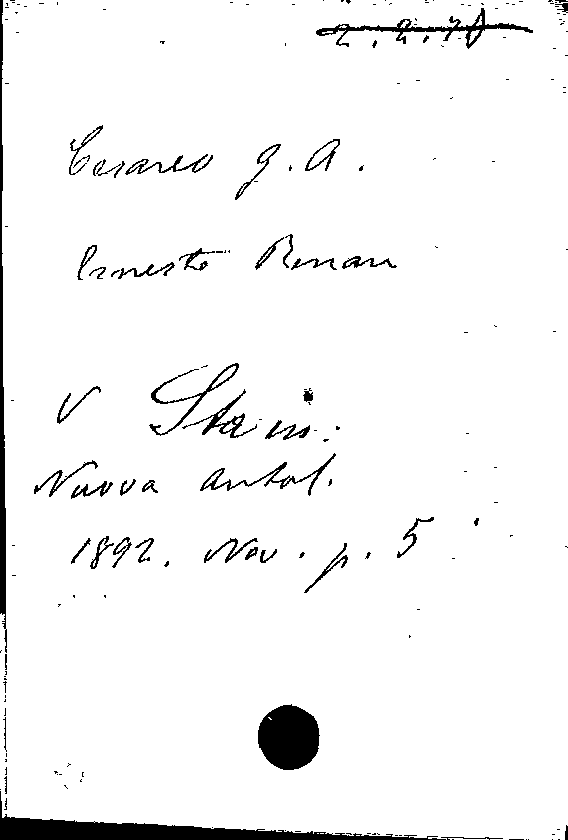 Cesareo G. A.
Ernesto Renan
V
Nuova Antol.
1892. Nov. p. 5